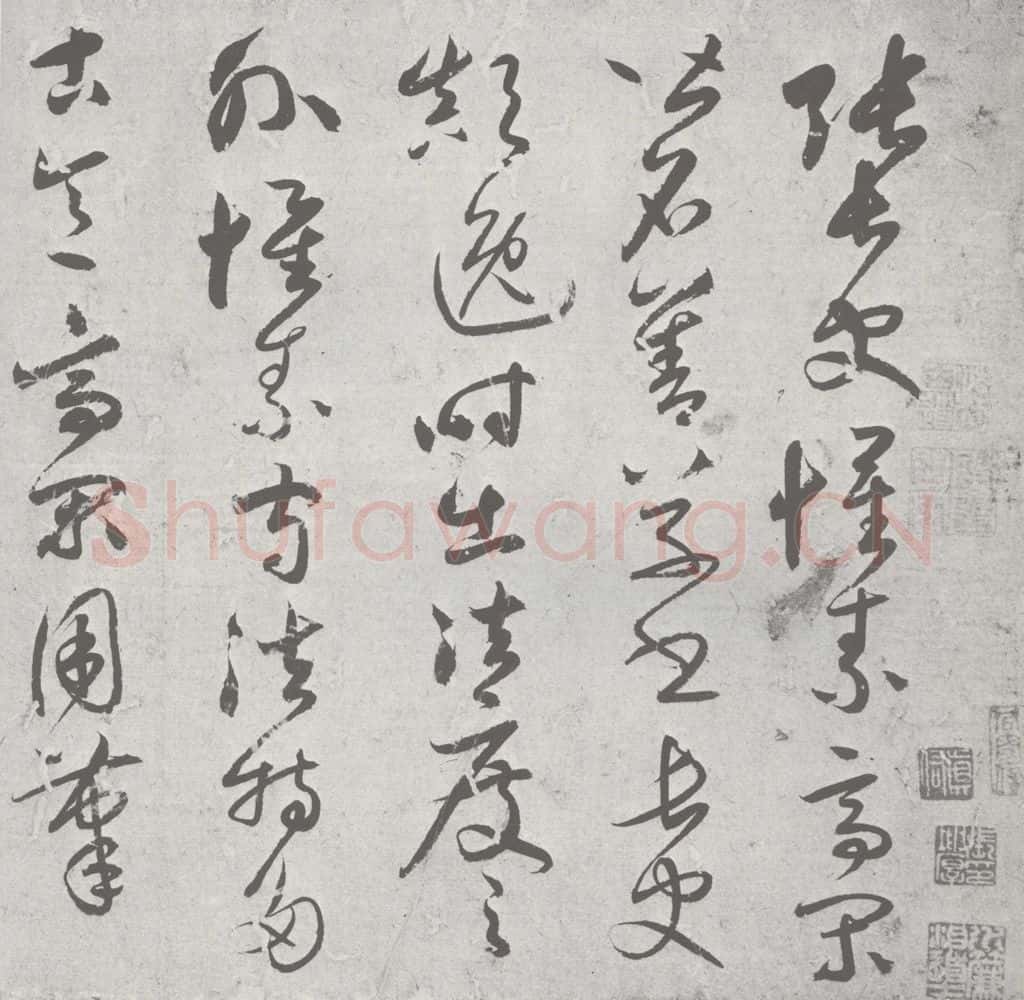 張長史懷素高閑
皆名善草書長史
顛逸時出法度之
外懷素守法特多
古意高閑用筆
Shufawang.CN